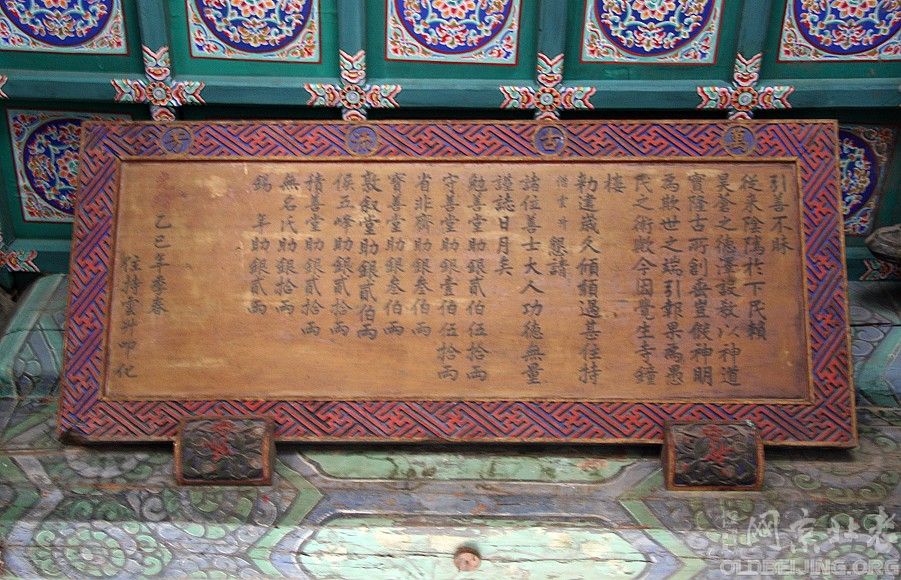 萬古流芳
引善不昧
從来陰隲於下民賴
昊蒼之德澤設敎以神道
實隆古所創垂豈假神明
為欺世之端引報果為愚
民之術哉今因覺生寺鐘
樓
勅建歲久傾頹過甚住持
僧雲升 懇請
諸位善士大人功德無量
謹誌日月矣
勉善堂助銀貳伯伍拾兩
守善堂助銀壹伯伍拾兩
省非齋助銀叁伯兩
寳善堂助銀叁伯兩
敦叙堂助銀貳伯兩
侯五峰助銀貳拾兩
積善堂助銀貳拾兩
無名氏助銀拾兩
錫 年助銀貳兩
乙巳年季春
住持雲升叩化
OLDBEIJING.ORG